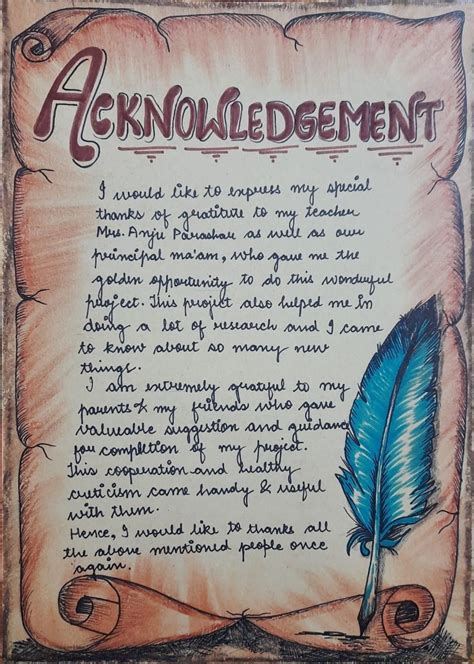 ACKNOWLEDGEMENT
I would like to express my special
thanks of gratitute to my teacher
Mrs. Anju Parashar as well as our
principal ma'am, who gave me the
golden opportunity to do this wonderful
project. This project also helped me in
doing a lot of research and I came
to know about so many new
things.
I am extremely grateful to my
parents & my friends who gave
valueable suggestion and guidance
for completion of my project.
This cooperation and healthy
creticism came handy & useful
with them.
Hence, I would like to thanks all
the above mentioned people once
again.